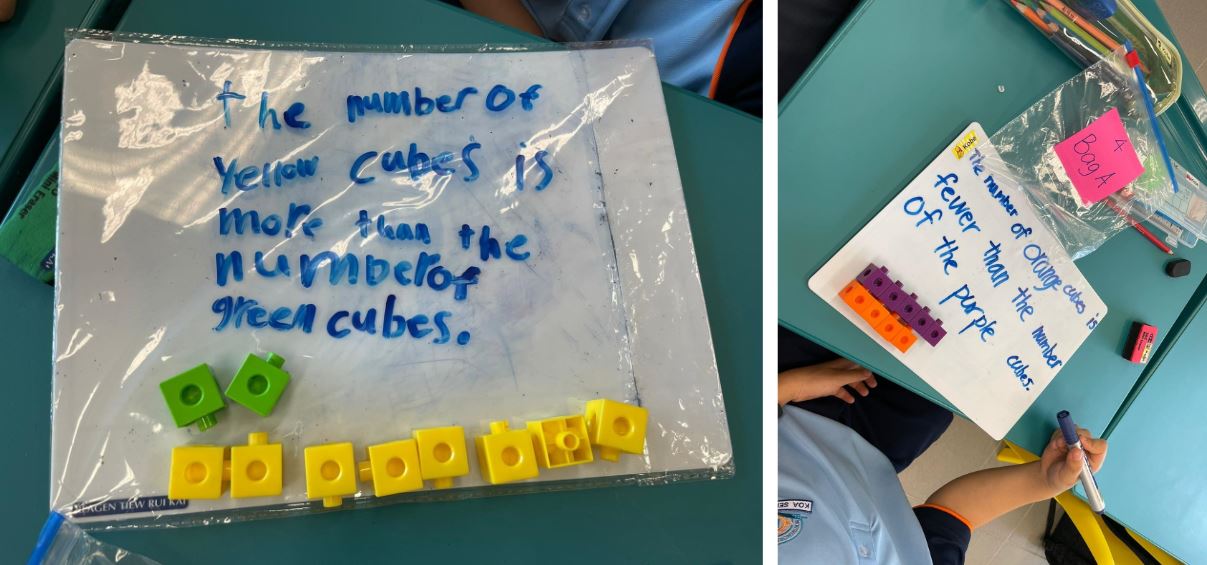 The number of
yellow cubes is
more than the
number of
green cubes.
Kobe
The number of Orange cubes is
fewer than the number
of the purple cubes.
4
Bag A
Eraser
TIEW RUI KAI
KOA SE